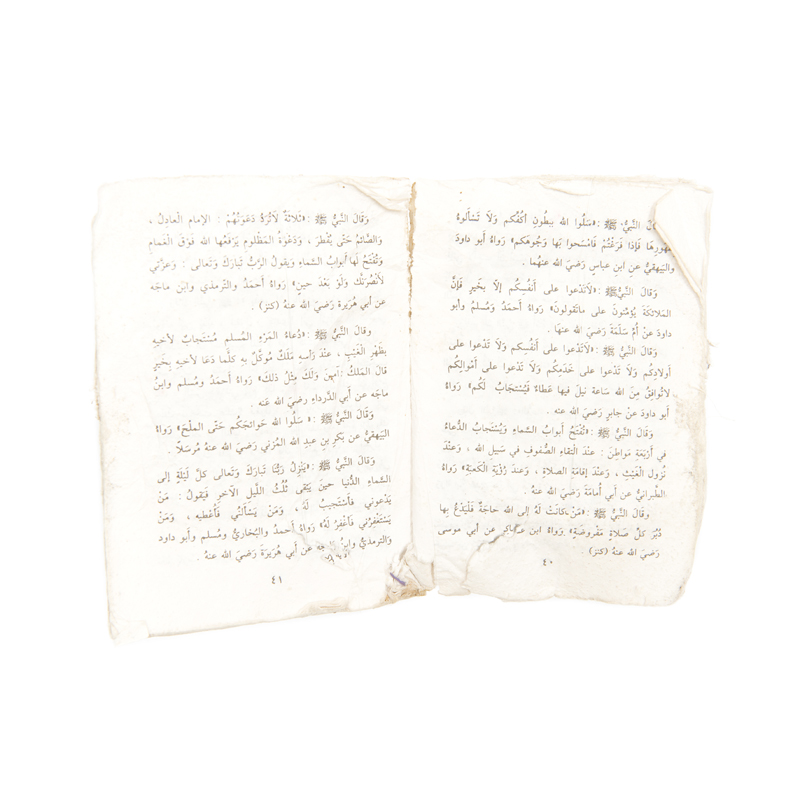 قالَ النَّبِيُّ ﷺ :«سَلُوا الله بِبطُونِ أَكُفِّكم وَلَا تَسْأَلوهُ
بِظُهورِهَا فَإِذَا فَرَغْتُمْ فَامْسَحوا بِهَا وَجُوهَكم» رَوَاهُ أَبو دَاودَ
وَالبَيهقيُّ عن ابن عباسٍ رَضيَ الله عنهُما .
وَقالَ النَّبيُّ ﷺ :«لَاتَدْعوا على أَنفُسِكم إلَّا بِخَيرٍ فَإِنَّ
المَلَائكَةَ يُؤمِّنونَ على ماتَقولونَ» رَوَاهُ أَحمدُ وَمُسلمٌ وأَبو
داودَ عنْ أُمِّ سَلَمَةَ رَضيَ الله عنهَا .
وَقالَ النَّبيُّ ﷺ :«لَاتَدْعوا على أَنْفُسِكم وَلَا تَدْعوا على
أَولَادِكُم وَلَا تَدْعوا على خَدَمِكم وَلَا تَدْعوا على أَموَالِكم
لاتُوَافِقُ مِنَ الله سَاعة نيلَ فيها عَطَاءٌ فَيُسْتَجَابُ لَكُم» رَوَاهُ
أَبو داودَ عنْ جابرٍ رَضيَ الله عنه .
وَقالَ النَّبيُّ ﷺ :«تُفْتَحُ أَبوابُ السَّماءِ وَيُسْتَجابُ الدُّعاءُ
في أَرْبَعَةِ مَوَاطِنَ : عنْدَ الْتِقاءِ الصُّفوفِ في سَبيلِ الله ، وَعنْدَ
نُزولِ الْغَيْثِ ، وَعنْدَ إقَامَةِ الصلاةِ ، وَعندَ رُؤْيَةِ الْكَعبَةِ» رَوَاهُ
الطَّبرانيُّ عن أَبي أُمَامَةَ رَضيَ الله عنهُ .
وَقالَ النَّبيُّ ﷺ :«مَنْ كَانَتْ لَهُ إلى الله حاجَةٌ فَليَدْعُ بِها
دُبُرَ كلِّ صَلاةٍ مَفْروضَةٍ» رَوَاهُ ابن عساكِر عن أَبي موسى
رَضيَ الله عنهُ (كنز) .
٤٠
وَقالَ النَّبيُّ ﷺ :«ثَلاثَةٌ لَاتُرَدُّ دَعوَتُهُمْ : الإمام الْعادِلُ ،
وَالصَّائمُ حَتَّى يُفْطرَ ، وَدَعْوَةُ المَظْلومِ يَرْفَعُها الله فَوْقَ الْغَمامِ
وَتُفْتَحُ لَها أَبوابُ السَّماءِ وَيقولُ الرَّبُّ تَبارَكَ وَتعالى : وَعزَّتي
لَأَنْصُرَنَّكَ وَلَوْ بَعْدَ حينٍ» رَوَاهُ أَحمَدُ وَالتِّرمذي وابن ماجَه
عن أَبي هُرَيرة رَضيَ الله عنهُ (كنز) .
وقالَ النَّبيُّ ﷺ :«دُعاءُ المَرْءِ المُسلمِ مُسْتَجابٌ لأخيهِ
بِظَهْرِ الْغَيْبِ ، عنْدَ رَأسِهِ مَلَكٌ مُوكَّلٌ بِهِ كلَّما دَعَا لأخيهِ بِخَيرٍ
قالَ المَلَكُ :آمينَ وَلَكَ مِثْلُ ذلكَ» رَوَاهُ أَحمَدُ وَمُسلم وابنُ
ماجَه عن أَبي الدَّرداءِ رضيَ الله عنه .
وَقالَ النَّبيُّ ﷺ :« سَلُوا الله حَوائجَكُم حَتَّى المِلْحَ» رَوَاهُ
البَيهقيُّ عن بَكرِ بنِ عبدِ الله المُزَني رَضيَ الله عنهُ مُرسَلًا .
وَقالَ النَّبيُّ ﷺ :«يَنْزِلُ رَبُّنَا تَبارَكَ وَتعالى كلَّ لَيْلَةٍ إلى
السَّماءِ الدُّنيَا حينَ يَبْقى ثُلُثُ اللَّيلِ الآخرِ فَيقولُ : مَنْ
يَدْعوني فَأَسْتَجيبُ لَهُ ، وَمَنْ يَسْأَلُني فَأُعْطيهِ ، وَمَنْ
يَسْتَغْفِرُني فَأَغْفِرُ لَهُ» رَوَاهُ أَحمدُ وَالبُخَاريُّ وَمُسلم وأَبو داود
وَالترمذيُّ وابنُ ماجَه عن أَبي هُرَيرَة رَضيَ الله عنهُ .
٤١